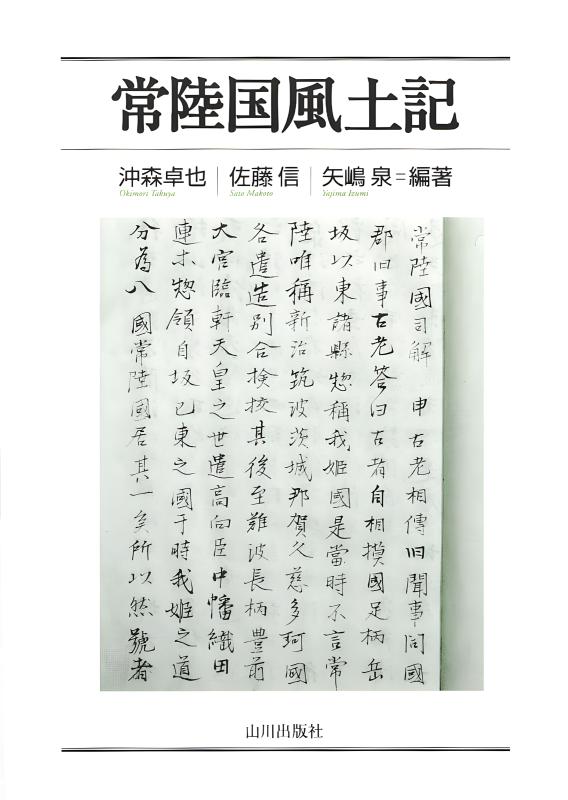 常陸国風土記
沖森卓也 佐藤 信 矢嶋 泉＝編著
Okimori Takuya Sato Makoto Yajima Izumi
常陸國司解 申古老相傳旧聞事問國
郡旧事古老答曰古者自相摸國足柄岳
坂以東諸縣惣稱我姬國是當時不言常
陸唯稱新治筑波茨城那賀久慈多珂國
各遣造別合檢挍其後至難波長柄豊前
大宮臨軒天皇之世遣高向臣中幡織田
連ホ惣領自坂已東之國于時我姬之道
分為八國常陸國居其一矣所以然號者
山川出版社